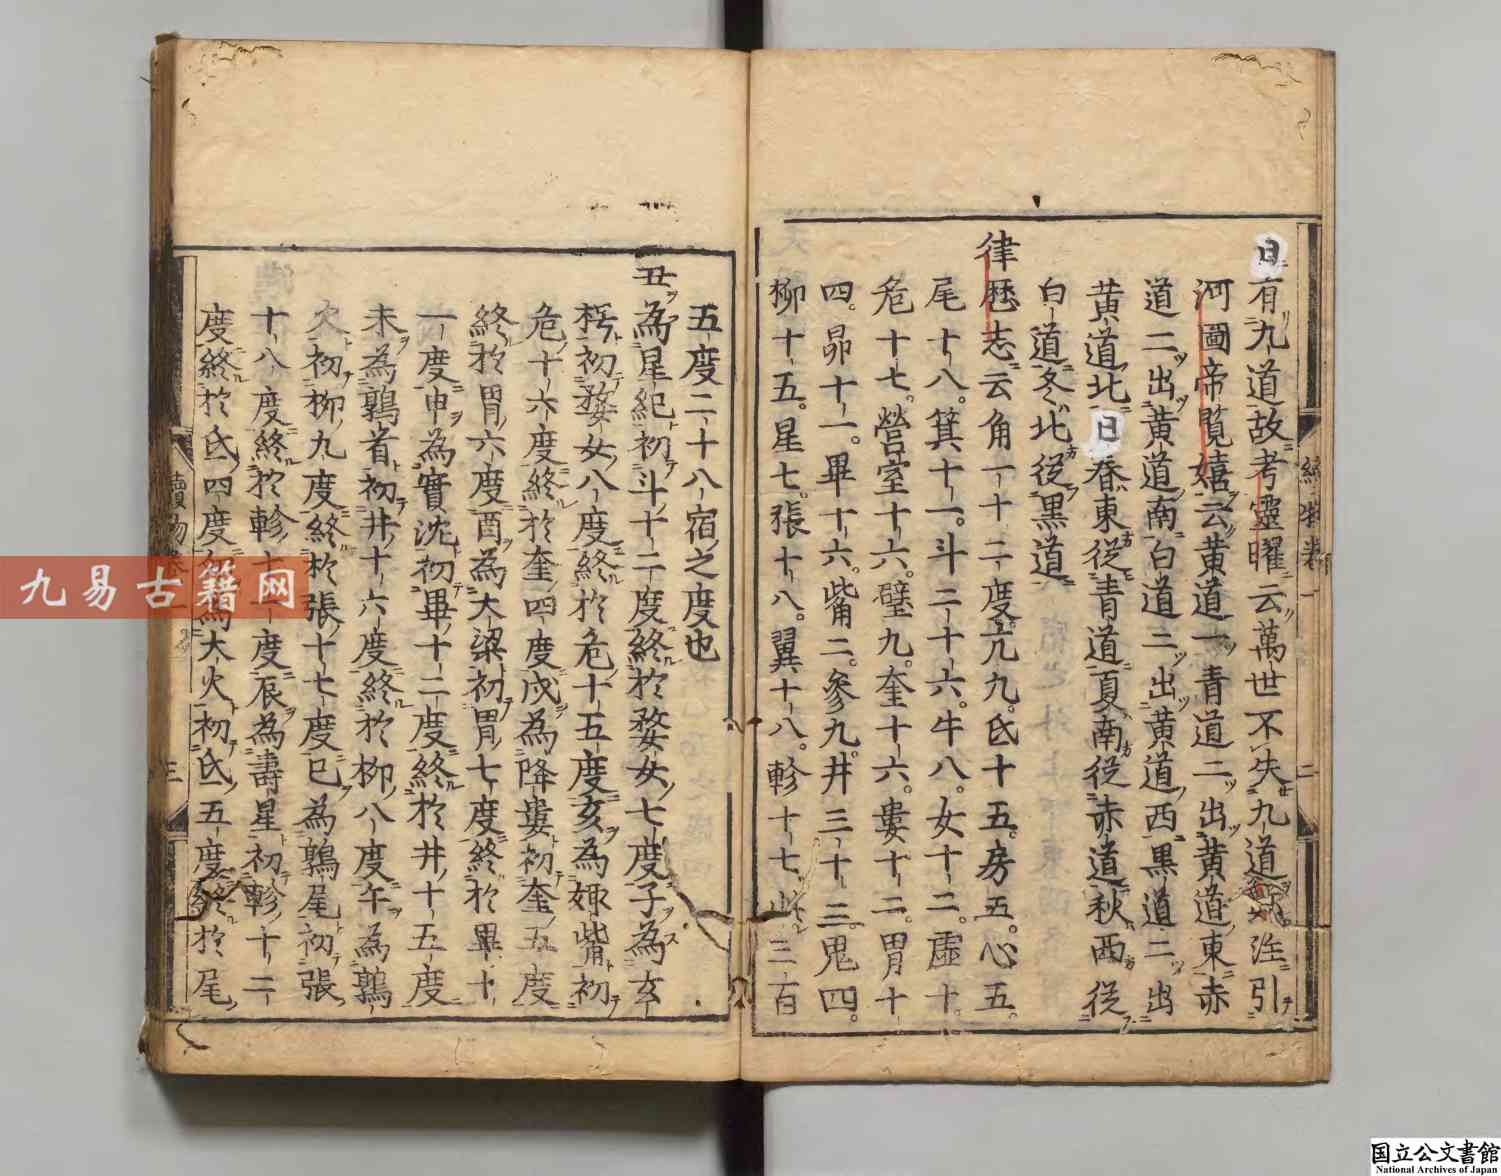 日有九道故考靈曜云萬世不失九道謀注引
河圖帝覽嬉云黄道一青道二出黄道東赤
道二出黄道南白道二出黄道西黒道二出
黄道北日春東從青道夏南從赤道秋西從
白道冬北從黒道
律歴志云角一十二度。亢九。氐十五。房五。心五。
尾十八。箕十一。斗二十六。牛八。女十二。虚十。
危十七。營室十六。壁九。奎十六。婁十二。胃十
四。昴十一。畢十六。觜二。參九。井三十三。鬼四。
柳十五。星七。張十八。翼十八。軫十七。此三百
五度二十八宿之度也
丑為星紀初斗十二度終於婺女七度子為玄
枵初婺女八度終於危十五度亥為娵觜初
危十六度終於奎四度戌為降婁初奎五度
終於胃六度酉為大梁初胃七度終於畢十
一度申為實沈初畢十二度終於井十五度
未為鶉首初井十六度終於柳八度午為鶉
火初柳九度終於張十七度巳為鶉尾初張
十八度終於軫十一度辰為壽星初軫十二
度終於氐四度卯為大火初氐五度終於尾
續物卷一
二
三
九易古籍网
国立公文書館
National Archives of Japan